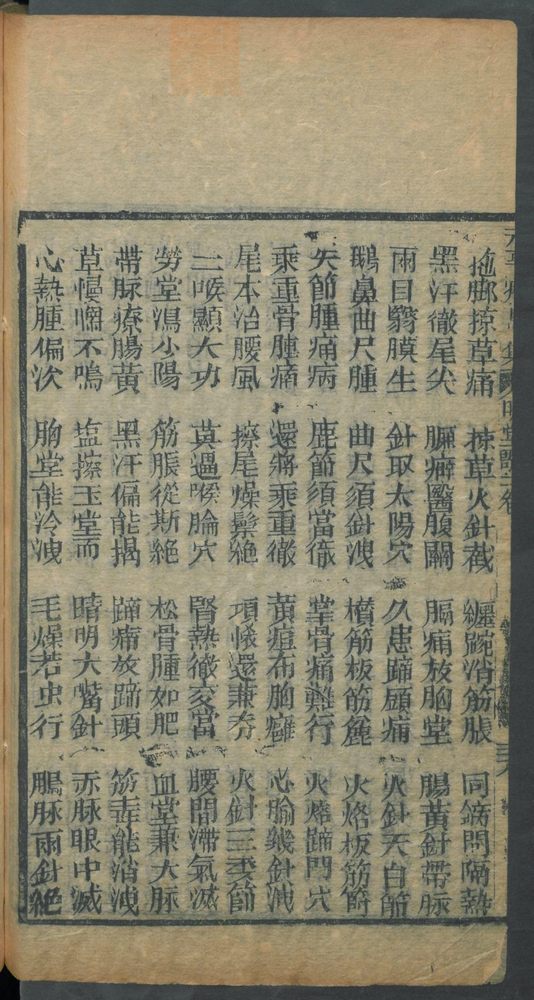 拖脚掠草痛　掠草火針截　纏腕消筋脹　同錺問隔熱
黑汗徹尾尖　臁癖醫腹關　膈痛放胸堂　腸黃針帶脉
兩目翳膜生　針取太陽穴　久患蹄頭痛　火針天白節
鵝鼻曲尺腫　曲尺須針洩　櫕筋板筋麄　火烙板筋節
失節腫痛病　鹿節須當徹　掌骨痛難行　火烙蹄門穴
乘重骨腫痛　還將乘重徹　黃疸布胸癰　心腧錢針洩
尾本治腰風　擦尾燥鬃絕　項恡還兼夯　火針三委節
二喉顯大功　莫過喉腧穴　腎熱徹交當　腰間滯氣滅
勞堂瀉小陽　筋脹從斯絕　松骨腫如肥　血堂兼大脉
帶脉療腸黃　黑汗偏能揭　蹄痛放蹄頭　筋毒能消洩
草慢嗍不鳴　塩擦玉堂而　睛明大觜針　赤脉眼中滅
心熱腫偏次　胸堂能泠洩　毛燥若虫行　鵰脉兩針絕